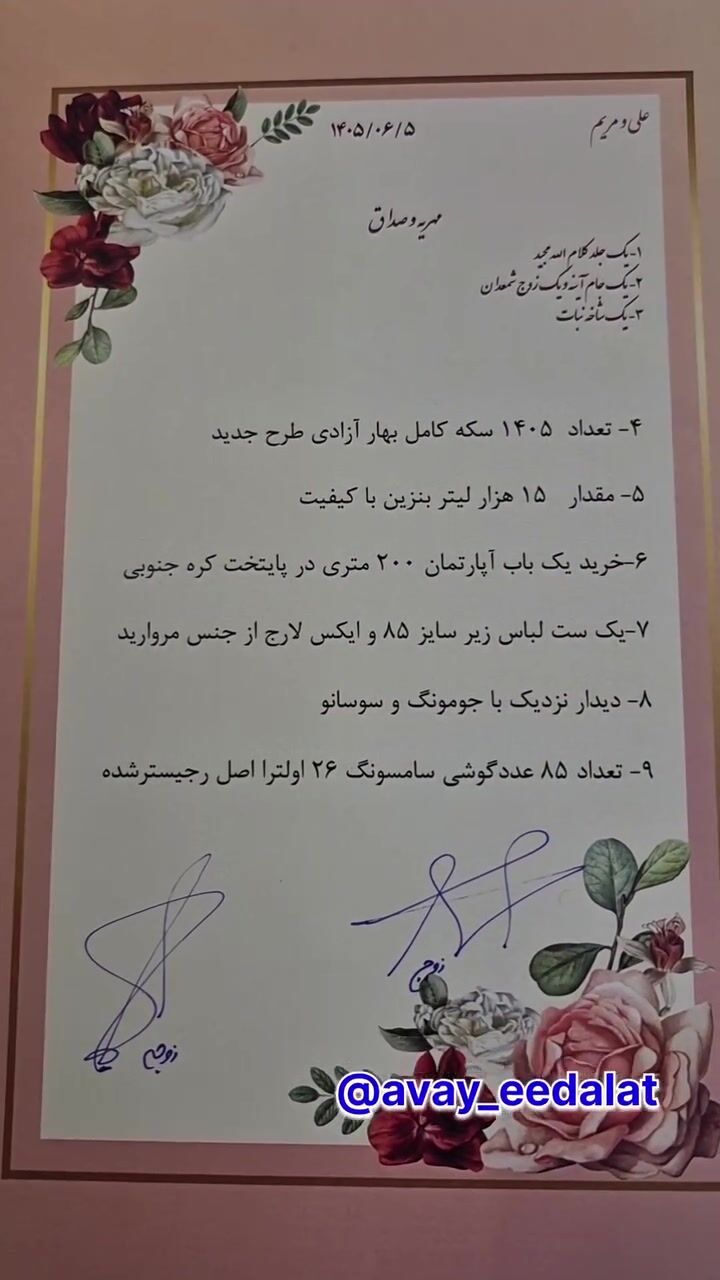 علی و مریم
۱۴۰۵/۰۶/۵
مهریه و صداق
۱-یک جلد کلام الله مجید
۲-یک جام آینه و یک زوج شمعدان
۳-یک شاخه نبات
۴- تعداد ۱۴۰۵ سکه کامل بهار آزادی طرح جدید
۵- مقدار ۱۵ هزار لیتر بنزین با کیفیت
۶-خرید یک باب آپارتمان ۲۰۰ متری در پایتخت کره جنوبی
۷-یک ست لباس زیر سایز ۸۵ و ایکس لارج از جنس مروارید
۸- دیدار نزدیک با جومونگ و سوسانو
۹- تعداد ۸۵ عددگوشی سامسونگ ۲۶ اولترا اصل رجیسترشده
زوج
زوجه
@avay_eedalat